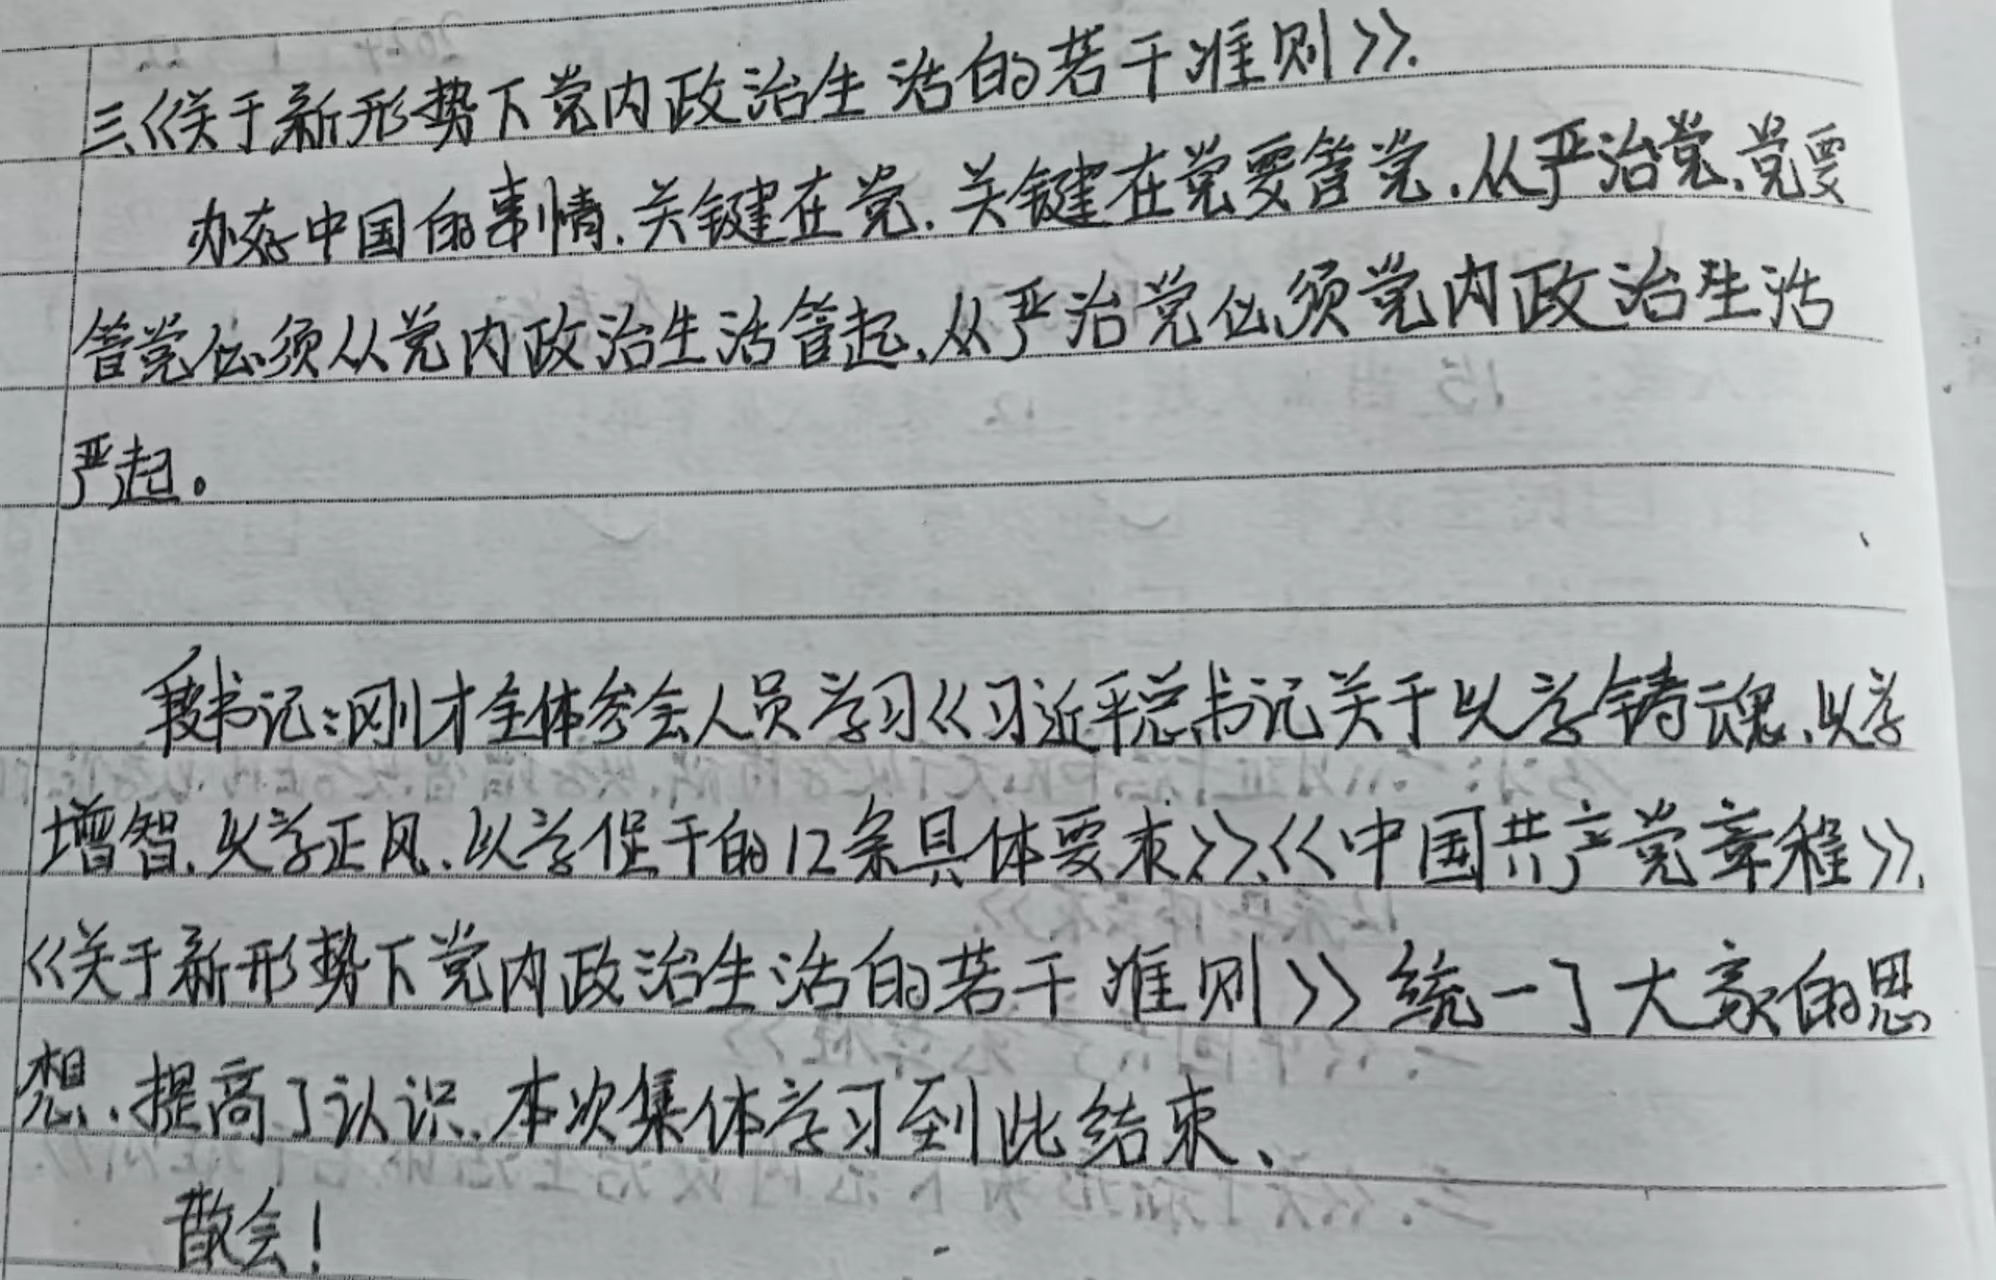 三、《关于新形势下党内政治生活的若干准则》.
办好中国的事情,关键在党,关键在党要管党,从严治党,党要
管党必须从党内政治生活管起,从严治党必须党内政治生活
严起。
段书记:刚才全体参会人员学习《习近平总书记关于以学铸魂、以学
增智、以学正风、以学促干的12条具体要求》、《中国共产党章程》、
《关于新形势下党内政治生活的若干准则》统一了大家的思
想、提高了认识、本次集体学习到此结束、
散会!